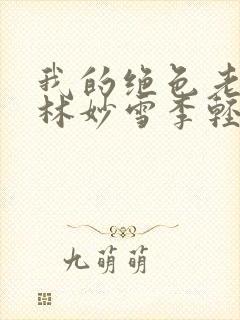 我的绝色老
林妙雪李轻
九萌萌